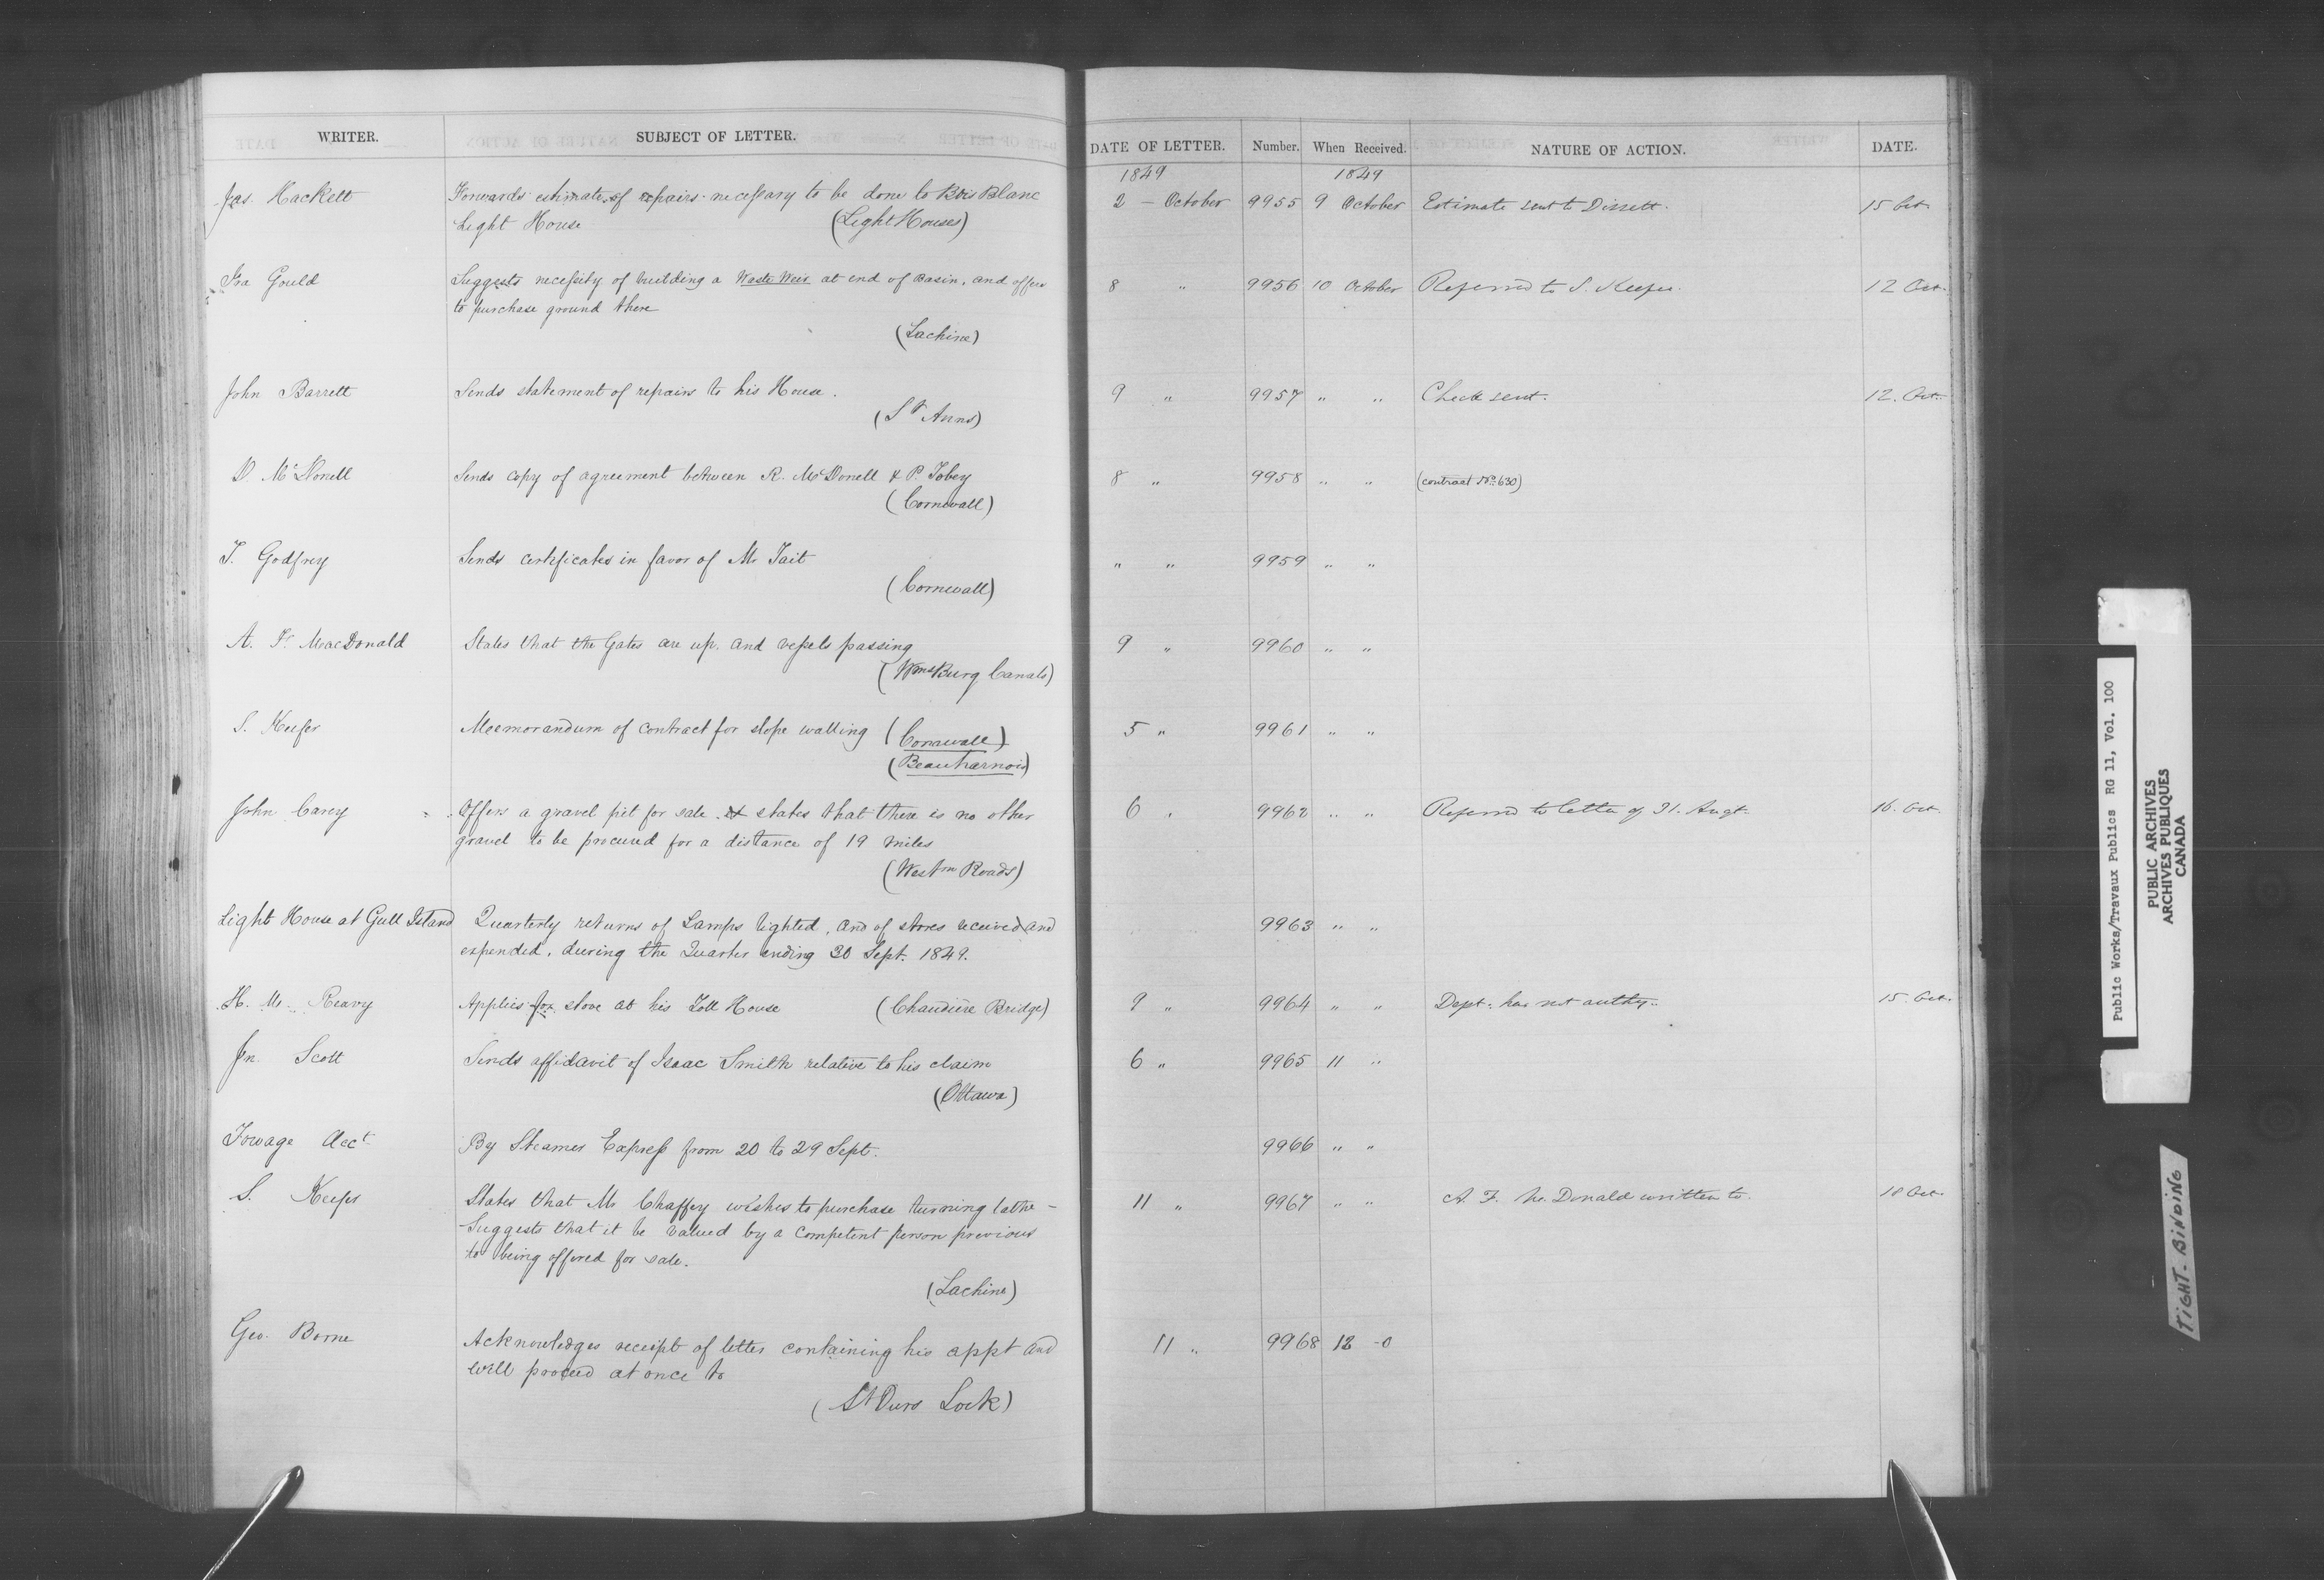 WRITER.
SUBJECT OF LETTER.
DATE OF LETTER.
Number.
When Received.
NATURE OF ACTION.
DATE.
1849
1849
Jas. Hackett
Forwards estimate of repairs necessary to be done to Bois Blanc
Light House (Light Houses)
2 - October 9955 9 October Estimate sent to 15 Oct.
Ira Gould
Suggests necessity of building a Waste Weir at end of Basin, and offers
to purchase ground there
(Lachine)
8 " 9956 10 October Referred to S. Keefer. 12 Oct.
John Barrett
Sends statement of repairs to his House.
(St Anns)
9 " 9957 " " Check sent. 12. Oct.
D. McDonell
Sends copy of agreement between R. McDonell & P. Tobey
(Cornwall)
8 " 9958 " " (contract No. 630)
T. Godfrey
Sends certificates in favor of Mr Tait
(Cornwall)
" " 9959 " "
A. Fr MacDonald
States that the Gates are up. and vessels passing
(WmsBurg Canals)
9 " 9960 " "
S. Keefer
Meemorandum of contract for slope walling (Cornwall)
(Beauharnois)
5 " 9961 " "
John Carey
Offers a gravel pit for sale & states that there is no other
gravel to be procured for a distance of 19 miles
(Westrn Roads)
6 " 9962 " " Referred to letter of 31. Augt. 16. Oct.
Light House at Gull Island
Quarterly returns of Lamps lighted, and of stores received and
expended, during the Quarter ending 30 Sept. 1849.
9963 " "
H. Mc. Reavy
Applies for stove at his Toll House (Chaudière Bridge)
9 " 9964 " " Dept. has not authy. 15. Oct.
Jn Scott
Sends affidavit of Isaac Smith relative to his claim
(Ottawa)
6 " 9965 11 "
Towage Acct
By Steamer Express from 20 to 29 Sept.
9966 " "
S. Keefer
States that Mr Chaffey wishes to purchase turning lathe -
Suggests that it be valued by a competent person previous
to being offered for sale.
(Lachine)
11 " 9967 " " A. F. Mc.Donald written to. 18 Oct.
Geo. Borne
Acknowledges receipt of letter containing his appt and
will proceed at once to
(St Ours Lock)
11 " 9968 12 - O
Public Works/Travaux Publics RG 11, Vol. 100
PUBLIC ARCHIVES
ARCHIVES PUBLIQUES
CANADA
TIGHT-BINDING